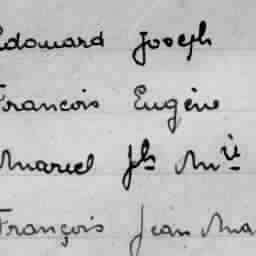 Edouard Joseph
Francois Eugène
Marcel Jh Mie
François Jean Ma